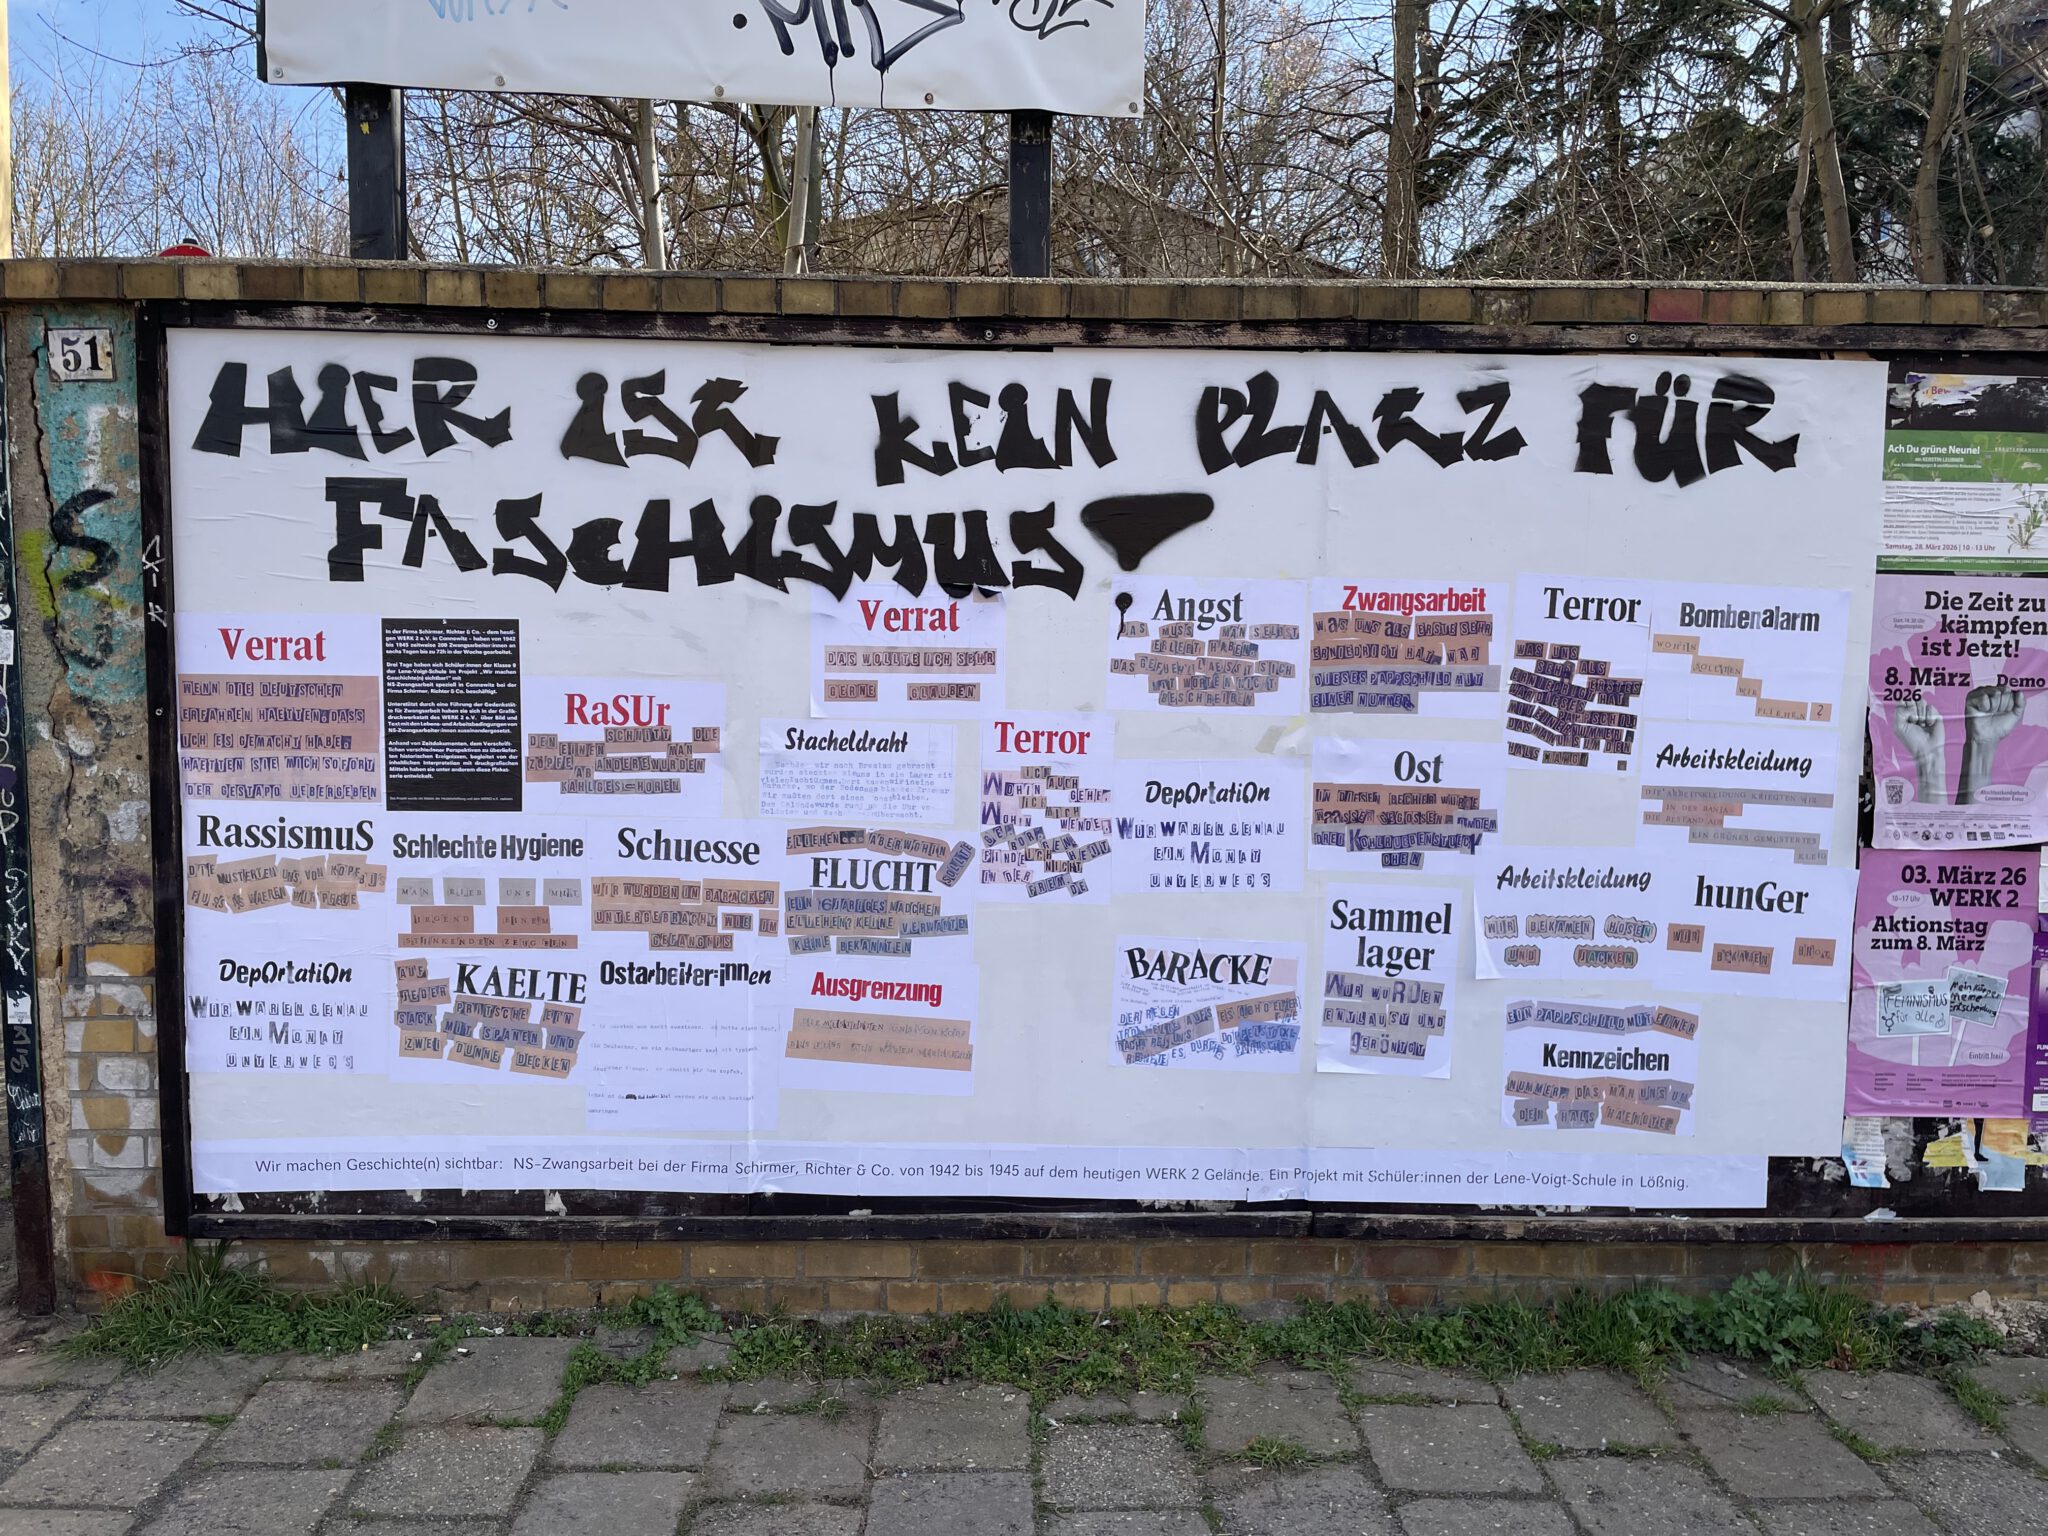 51
HiER iST KEiN PLATZ FÜR
FASCHiSMUS
Verrat
WENN DIE DEUTSCHEN
ERFAHREN HAETTEN, DASS
ICH ES GEMACHT HABE,
HAETTEN SIE MICH SOFORT
DER GESTAPO UEBERGEBEN
In der Firma Schirmer, Richter & Co. - dem heuti-
gen WERK 2 e.V. in Connewitz - haben von 1942
bis 1945 zeitweise 200 Zwangsarbeiter:innen an
sechs Tagen bis zu 72h in der Woche gearbeitet.
Drei Tage haben sich Schüler:innen der Klasse 9
der Lene-Voigt-Schule im Projekt „Wir machen
Geschichte(n) sichtbar!" mit
NS-Zwangsarbeit speziell in Connewitz bei der
Firma Schirmer, Richter & Co. beschäftigt.
Unterstützt durch eine Führung der Gedenkstät-
te für Zwangsarbeit haben sie sich in der Grafik-
druckwerkstatt des WERK 2 e.V. über Bild und
Text mit den Lebens- und Arbeitsbedingungen von
NS-Zwangsarbeiter:innen auseinandergesetzt.
Anhand von Zeitdokumenten, dem Verschrift-
lichen verschiedener Perspektiven zu überliefer-
ten historischen Ereignissen, begleitet von der
inhaltlichen Interpretation mit druckgrafischen
Mitteln haben sie unter anderem diese Plakat-
serie entwickelt.
RaSUr
DEN EINEN SCHNITT MAN DIE
ZÖPFE AB ANDERE WURDEN
KAHLGESCHOREN
Verrat
DAS WOLLTE ICH SEHR
GERNE GLAUBEN
Angst
DAS MUSS MAN SELBST
ERLEBT HABEN.
DAS GEFUEHL LAESST SICH
MIT WORTEN NICHT
BESCHREIBEN
Zwangsarbeit
WAS UNS ALS ERSTE SEHR
ERNIEDRIGT HAT, WAR
DIESES PAPPSCHILD MIT
EINER NUMMER
Terror
WAS UNS
SEHR ALS
ERNIEDRIGT ERSTES
WAR DIESES
MIT EINER PAPPSCHILD
NUMMER,
DAS MAN UNS UM DEN
HALS HAENGT
Bombenalarm
WOHIN
SOLLTEN
WIR
FLIEHEN ?
Stacheldraht
Terror
WOHIN ICH AUCH GEHE,
WOHIN ICH MICH WENDE,
GEBORGENHEIT
FINDE ICH NICHT
IN DER FREMDE
DepOrtatiOn
WIR WAREN GENAU
EIN MONAT
UNTERWEGS
Ost
IN DIESEN BECHER WURDE
WASSER GEGOSSEN, IN DEM
DREI KOHLRUEBENSTUECK
CHEN
Arbeitskleidung
DIE ARBEITSKLEIDUNG KRIEGTEN WIR
IN DER BANJA
DIE BESTAND AUS
EIN GRÜNES GEMUSTERTES
KLEID
RassismuS
DIE MUSTERTEN UNS VON KOPF BIS
FUSS ALS WAEREN WIR PFERDE
Schlechte Hygiene
MAN RIEB UNS MIT
IRGEND EINEM
STINKENDEN ZEUG EIN
Schuesse
WIR WURDEN IN BARACKEN
UNTERGEBRACHT WIE IM
GEFÄNGNIS
FLIEHEN... ABER WOHIN SOLLTE
FLUCHT
EIN 16 JÄHRIGES MÄDCHEN
FLIEHEN? KEINE VERWANTEN
KEINE BEKANNTEN
Arbeitskleidung
WIR BEKAMEN HOSEN
UND JACKEN
hunGer
WIR BEKAMEN BROT
DepOrtatiOn
WIR WAREN GENAU
EIN MONAT
UNTERWEGS
KAELTE
AUF
JEDER PRITSCHE EIN
SACK MIT SPÄNEN UND
ZWEI DÜNNE DECKEN
Ostarbeiter:innen
Ausgrenzung
BARACKE
Sammel
lager
WIR WURDEN
ENTLAUST UND
GERÖNTGT
EIN PAPPSCHILD MIT EINER
Kennzeichen
NUMMER, DAS MAN UNS UM
DEN HALS HAENGTE
Wir machen Geschichte(n) sichtbar: NS-Zwangsarbeit bei der Firma Schirmer, Richter & Co. von 1942 bis 1945 auf dem heutigen WERK 2 Gelände. Ein Projekt mit Schüler:innen der Lene-Voigt-Schule in Lößnig.
Ach Du grüne Neune!
Samstag, 28. März 2026 | 10 - 13 Uhr
Die Zeit zu
kämpfen
ist Jetzt!
8. März
2026
Demo
03. März 26
10-17 Uhr
WERK 2
Aktionstag
zum 8. März
FEMINISMUS
für alle
Mein Körper
Meine
Entscheidung
Eintritt frei!